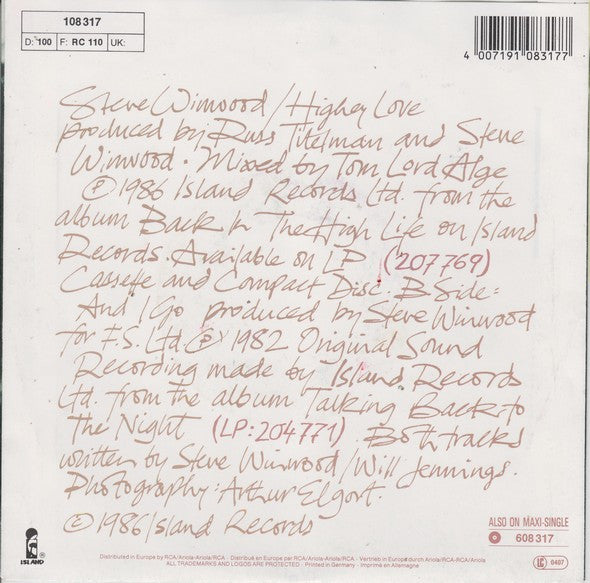 108 317
D: 100 F: RC 110 UK:
4 007191 083177
Steve Winwood/Higher Love
produced by Russ Titelman and Steve
Winwood. Mixed by Tom Lord Alge
℗1986 Island Records Ltd. from the
album Back In The High Life on Island
Records. Available on LP (207769)
Cassette and Compact Disc. B Side:
And I Go produced by Steve Winwood
for F.S. Ltd. ℗1982 Original Sound
Recording made by Island Records
Ltd. from the album Talking Back to
The Night (LP:204771). Both tracks
written by Steve Winwood/Will Jennings.
Photography: Arthur Elgort.
©1986 Island Records
ALSO ON MAXI-SINGLE
608 317
ISLAND
Distributed in Europe by RCA/Ariola-Ariola/RCA - Distribué en Europe par RCA/Ariola-Ariola/RCA - Vertrieb in Europa durch Ariola/RCA-RCA/Ariola
ALL TRADEMARKS AND LOGOS ARE PROTECTED - Printed in Germany - Imprimé en Allemagne
LC 0407